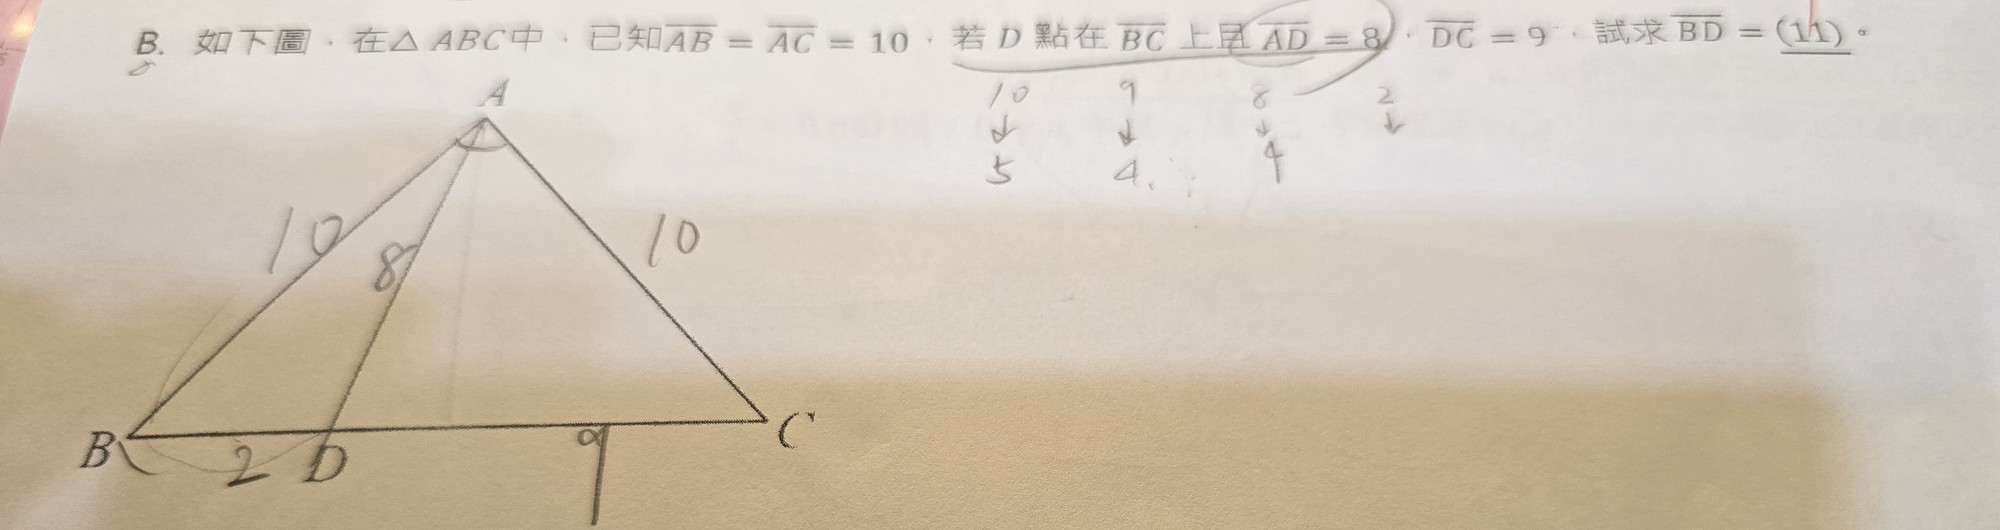 B. 如下圖,在△ABC中,已知AB = AC = 10,若 D 點在 BC 上且 AD = 8,DC = 9,試求 BD = (11)。
10 9 8 2
↓ ↓ ↓ ↓
5 4. 4
A
10 8 10
B 2 D 9 C